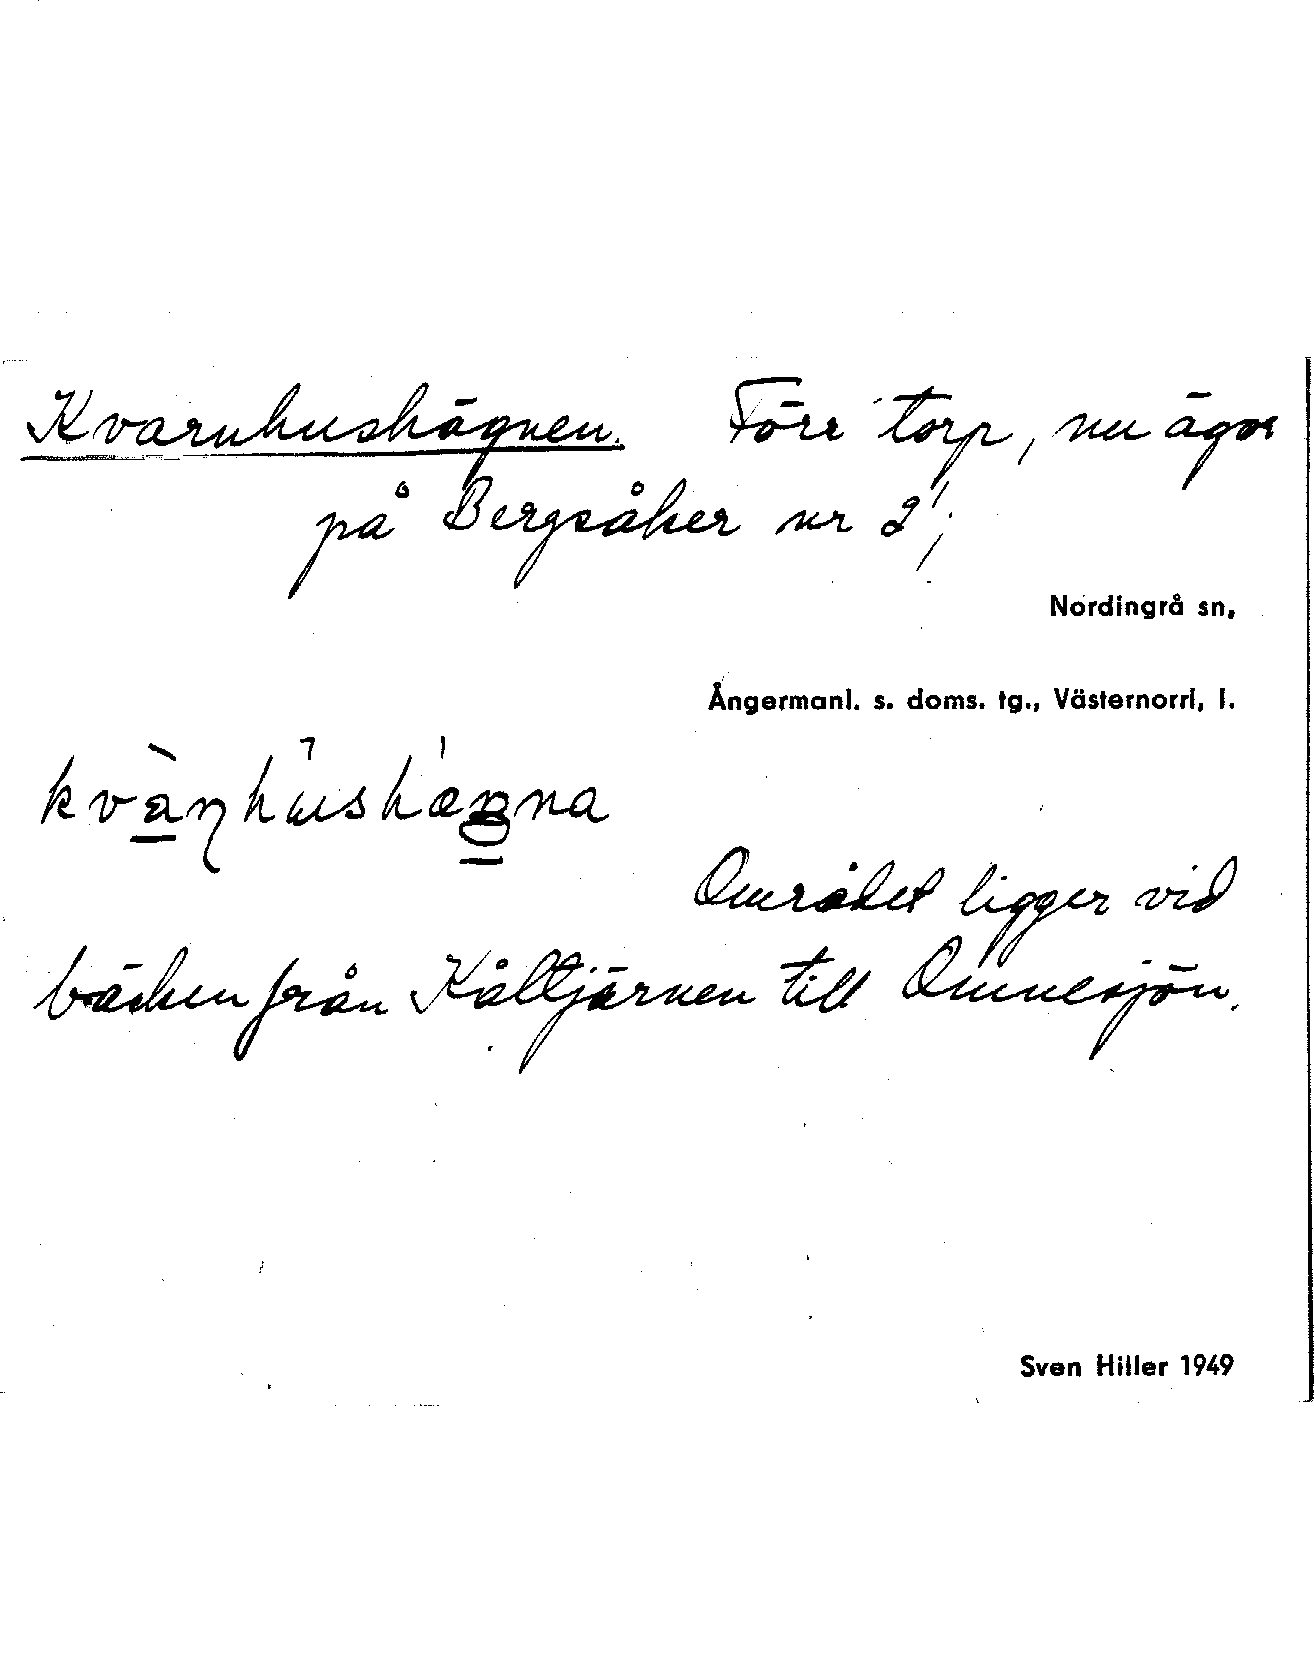 Kvarnhushägnen. Förr torp, nu ägor
på Bergsåker nr 2¹;
Nordingrå sn,
Ångermanl. s. doms. tg., Västernorrl, l.
Området ligger vid
bäcken från Kåltjärnen till Omnesjön.
Sven Hiller 1949